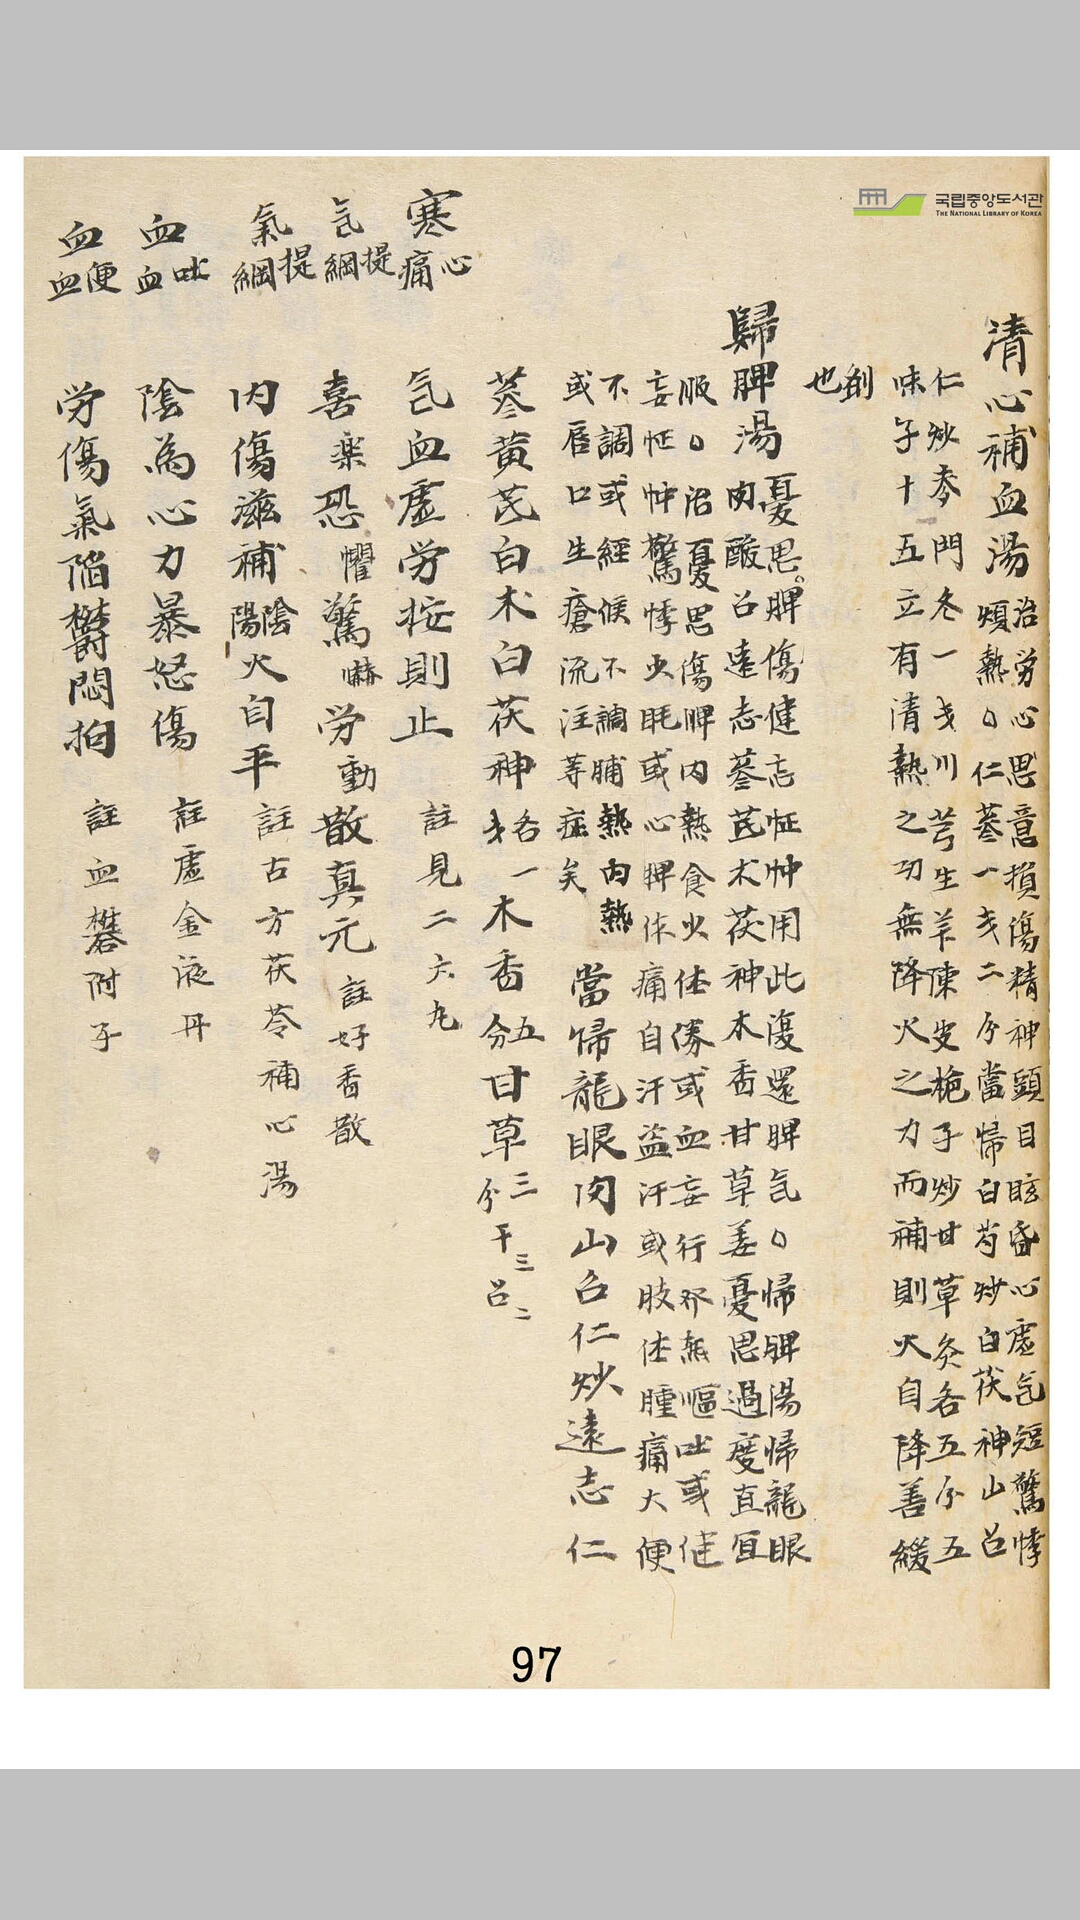 국립중앙도서관
THE NATIONAL LIBRARY OF KOREA
清心補血湯
治労心思意損傷精神頭目眩昏心虛気短驚悸
煩熱仁蔘一戔二分當帰白芍炒白茯神山召
仁炒麥門冬一戔川芎生羊陳皮梔子炒甘草灸各五分五
味子十五立有清熱之功無降火之力而補則火自降善緩
劑
也
歸脾湯
憂思脾傷健忘怔忡用此復還脾気帰脾湯帰龍眼
肉酸召遠志蔘芪朮茯神木香甘草姜憂思過度直宜
服治憂思傷脾内熱食少体倦或血妄行発熱嘔吐或健
妄怔忡驚悸少眠或心脾体痛自汗盗汗或肢体腫痛大便
不調或經候不調晡熱内熱
或唇口生瘡流注等症矣
當帰龍眼肉山召仁炒遠志仁
蔘黃芪白朮白茯神各一戔木香五分甘草三分干三召二
寒心痛
気血虛労按則止
註見二六九
気提綱
喜楽恐懼驚嚇労動散真元
註好香散
氣提綱
内傷滋補陰陽火自平
註古方茯苓補心湯
血吐血
陰為心力暴怒傷
註虛金液丹
血便血
労傷氣陷欝悶拍
註血礬附子
97